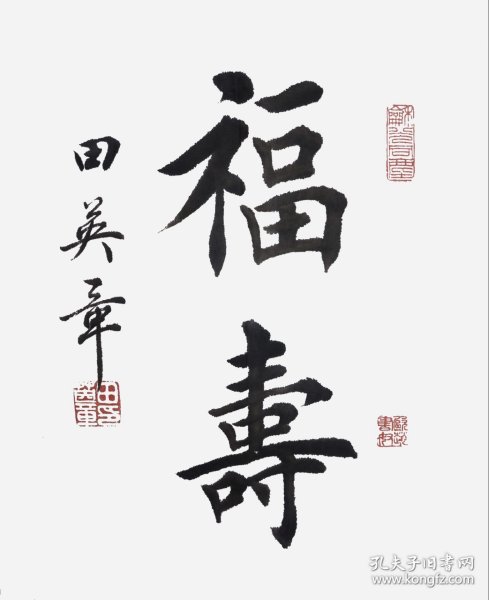 福壽
田英章
孔夫子旧书网
www.kongfz.com